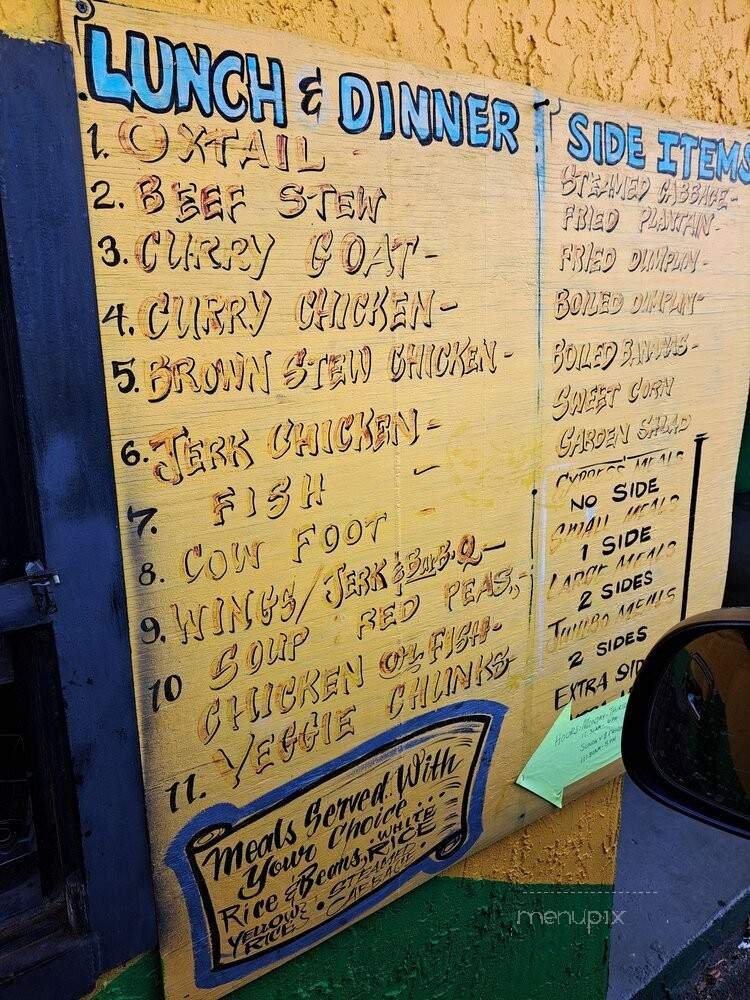 LUNCH & DINNER
1. OXTAIL
2. BEEF STEW
3. CURRY GOAT-
4. CURRY CHICKEN-
5. BROWN STEW CHICKEN-
6. JERK CHICKEN-
7. FISH -
8. COW FOOT
9. WINGS/JERK & Bar-B-Q-
10 SOUP RED PEAS,-
CHICKEN OR FISH-
11. VEGGIE CHUNKS
Meals Served With
Your Choice...
Rice & Beans, WHITE RICE
YELLOW RICE • STEAMED CABBAGE.
SIDE ITEMS
STEAMED CABBAGE-
FRIED PLANTAIN-
FRIED DUMPLIN-
BOILED DUMPLIN-
BOILED BANANAS-
SWEET CORN
GARDEN SALAD
EXPRESS MEALS
NO SIDE
SMALL MEALS
1 SIDE
LARGE MEALS
2 SIDES
JUMBO MEALS
2 SIDES
EXTRA SID
HOURS: MONDAY
menupix